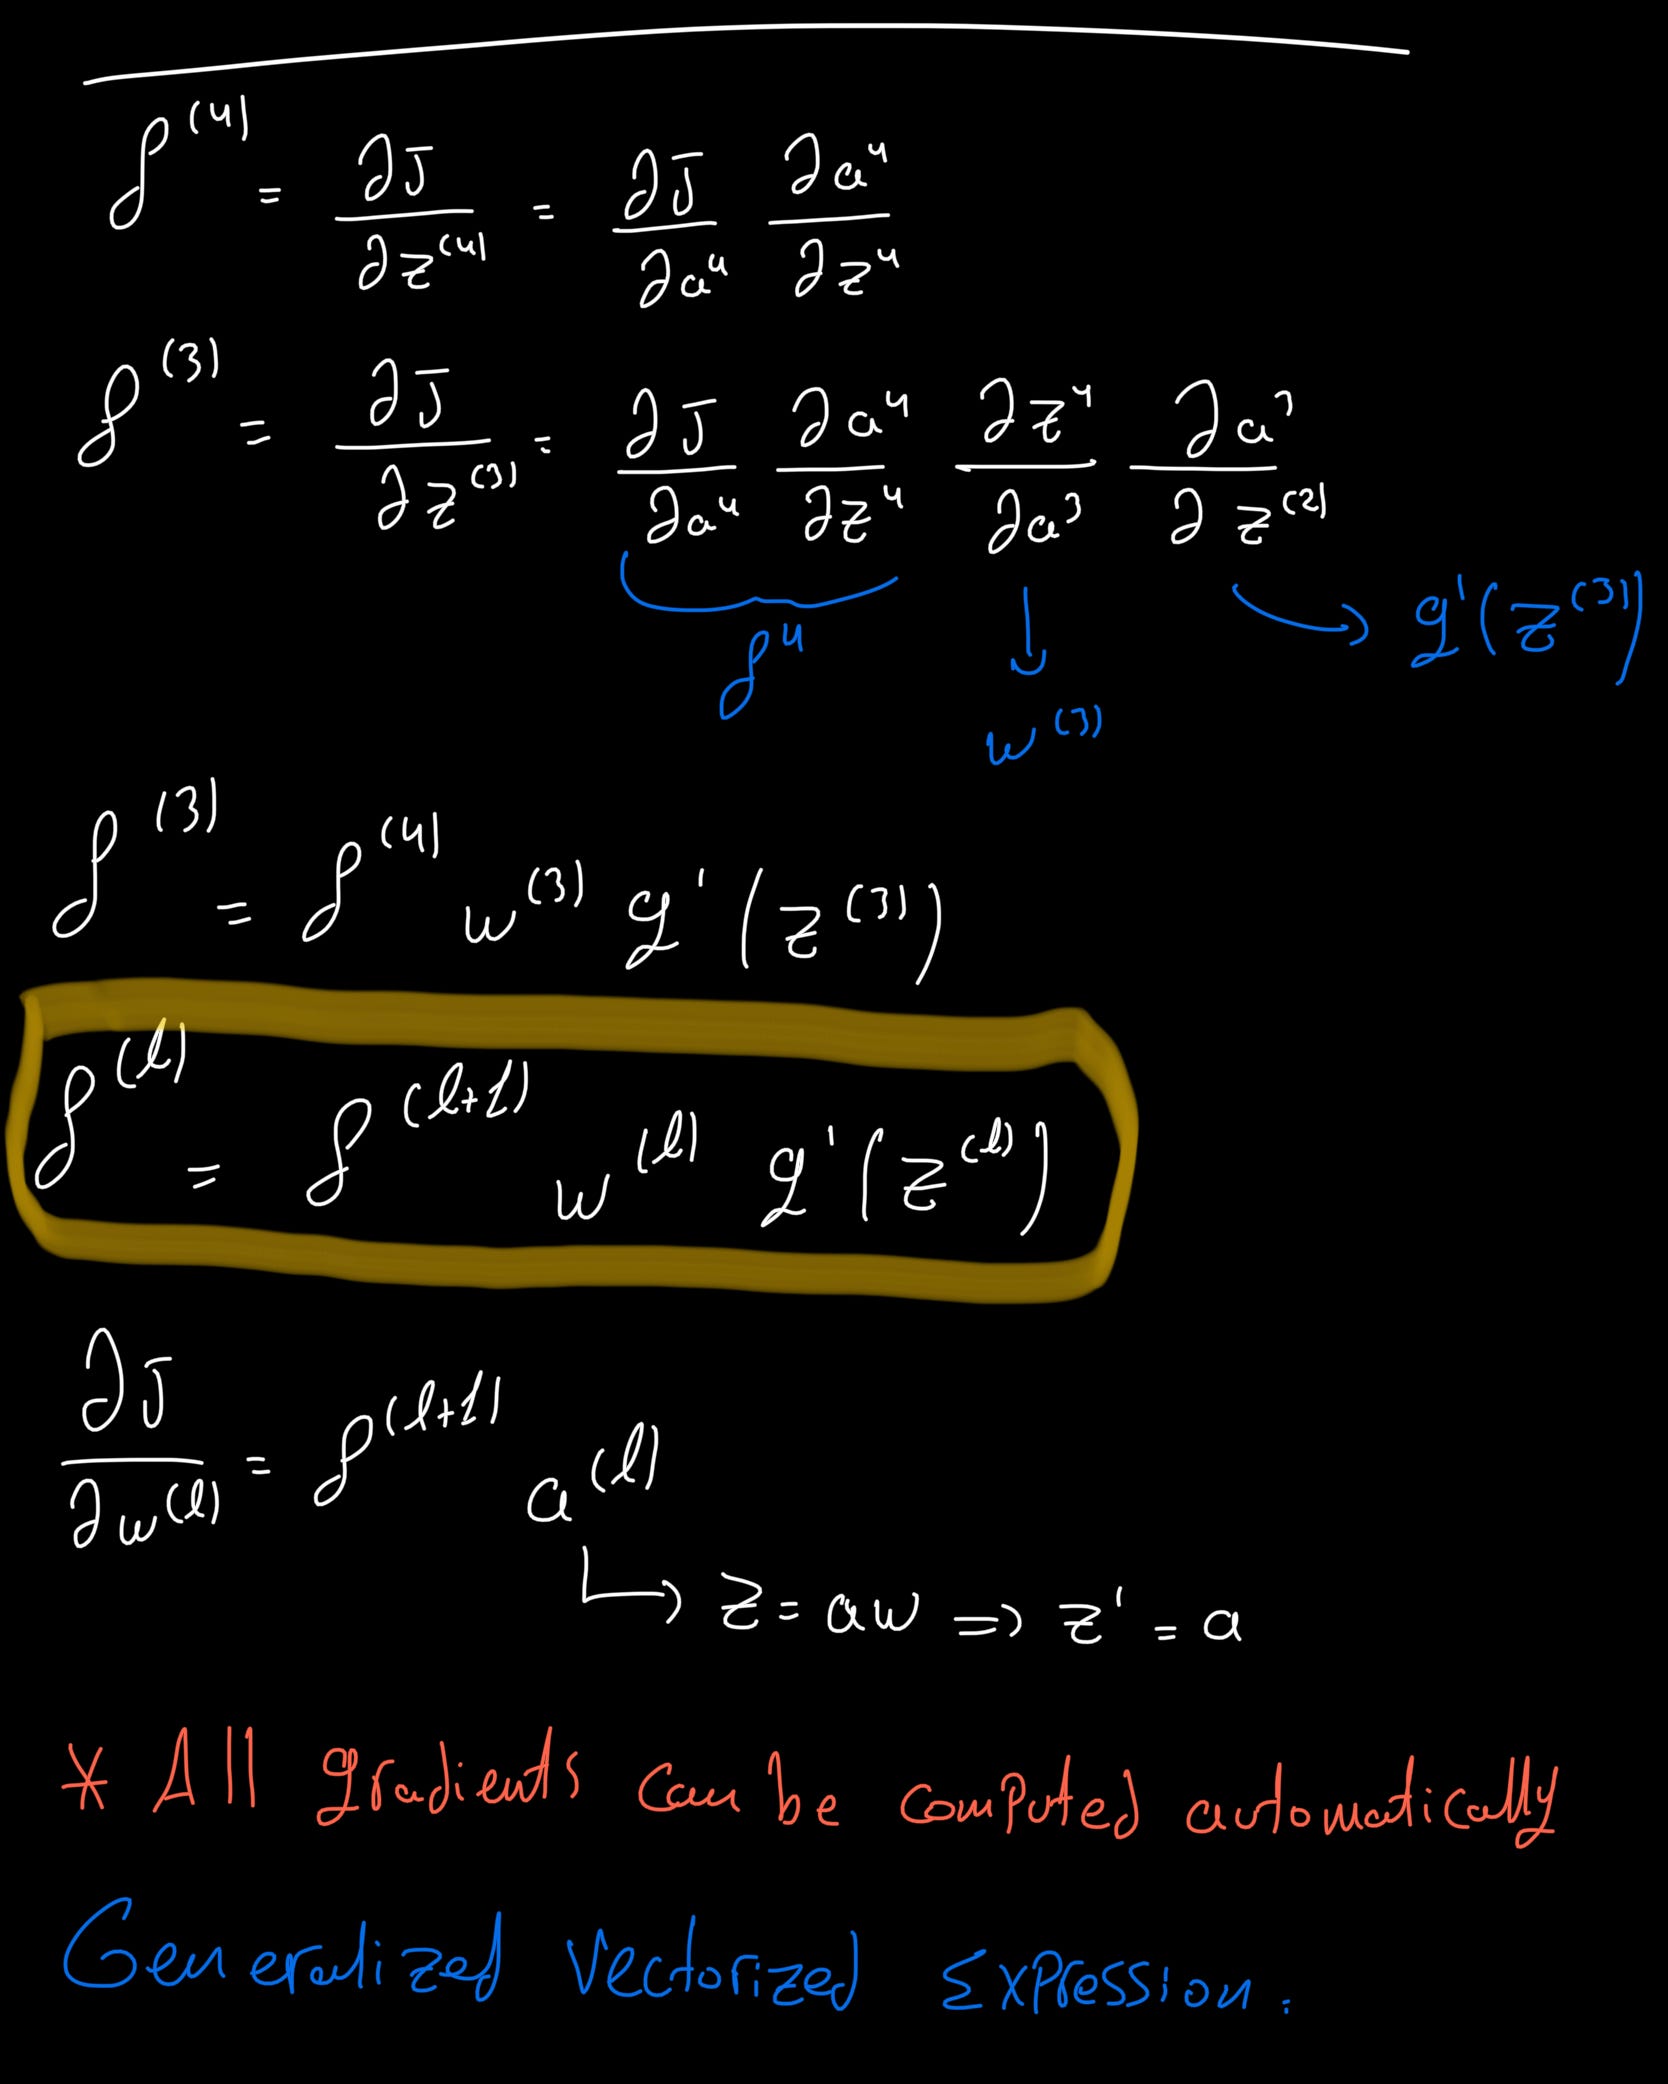 δ^(4) = ∂J/∂z^(4) = ∂J/∂a^4 ∂a^4/∂z^4
δ^(3) = ∂J/∂z^(3) = ∂J/∂a^4 ∂a^4/∂z^4 ∂z^4/∂a^3 ∂a^3/∂z^(2)
δ^4 ↓ → g'(z^(3))
w^(3)
δ^(3) = δ^(4) w^(3) g'(z^(3))
δ^(l) = δ^(l+1) w^(l) g'(z^(l))
∂J/∂w^(l) = δ^(l+1) a^(l)
↳ z = aw => z' = a
* All gradients can be computed automatically
Generalized vectorized Expression.